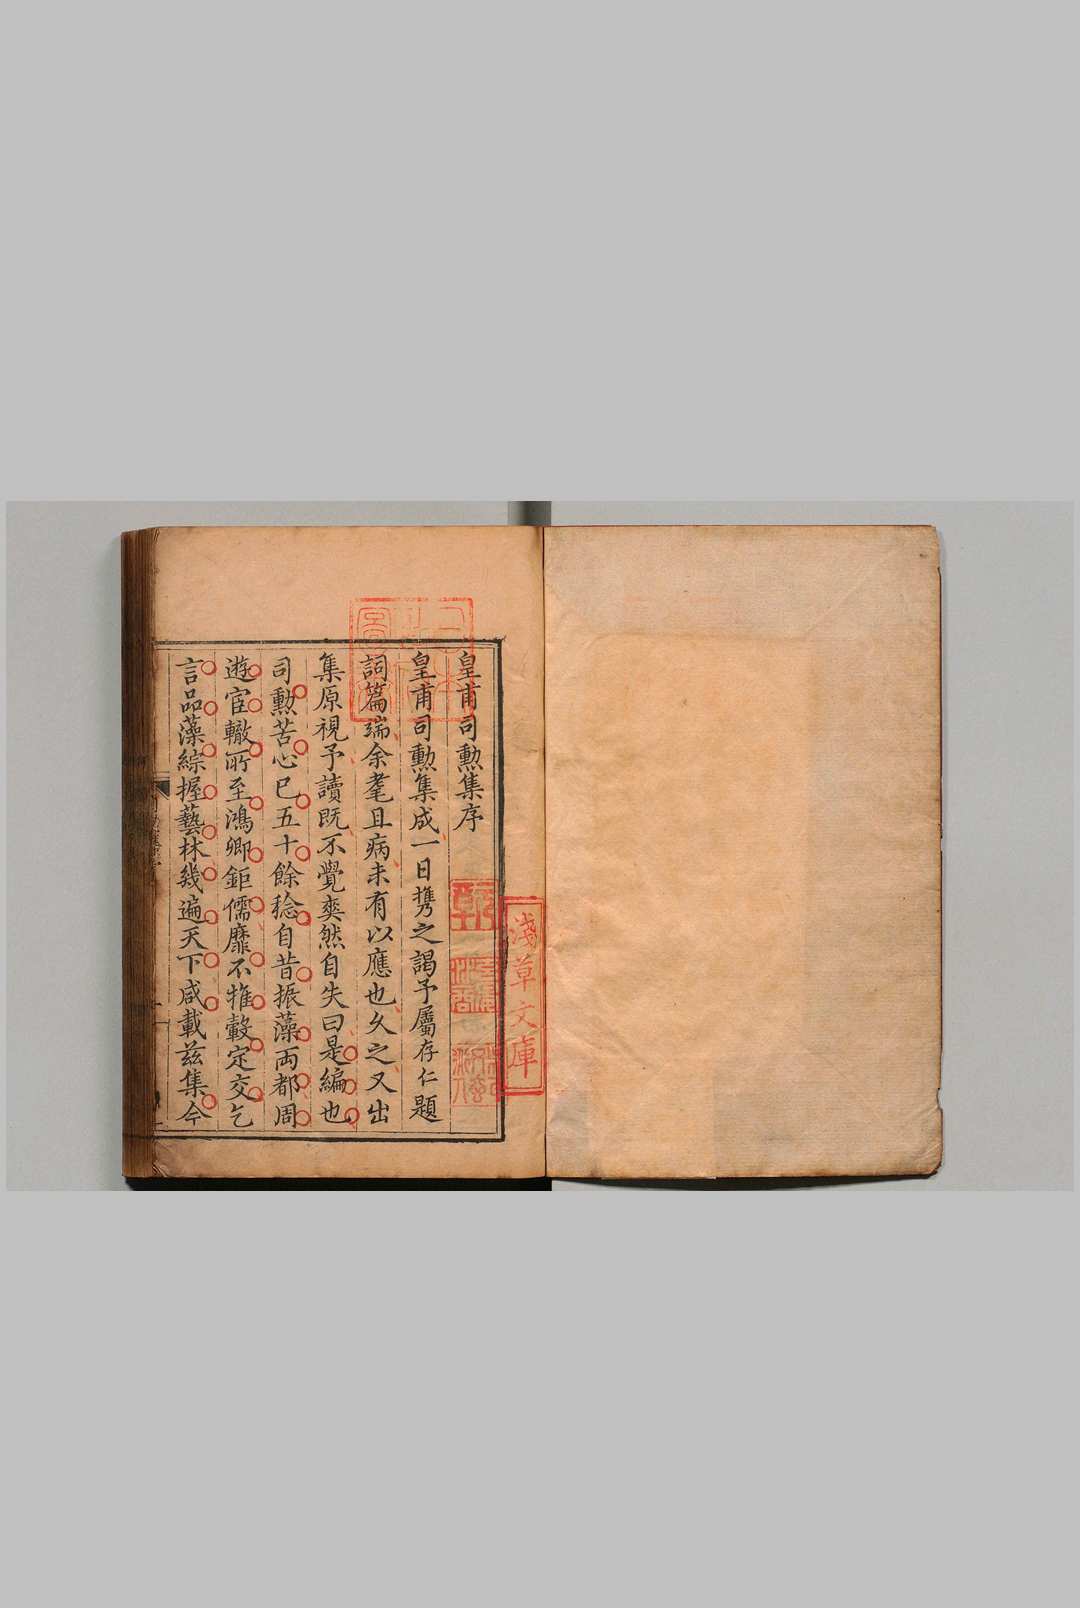 皇甫司勲集序
皇甫司勲集成一日攜之謁予屬存仁題
詞篇端余耄且病未有以應也久之又出
集原視予讀既不覺爽然自失曰是編也
司勲苦心已五十餘稔自昔振藻両都周
遊宦轍所至鴻卿鉅儒靡不推轂定交乞
言品藻綜握藝林幾遍天下咸載茲集今
淺草文庫